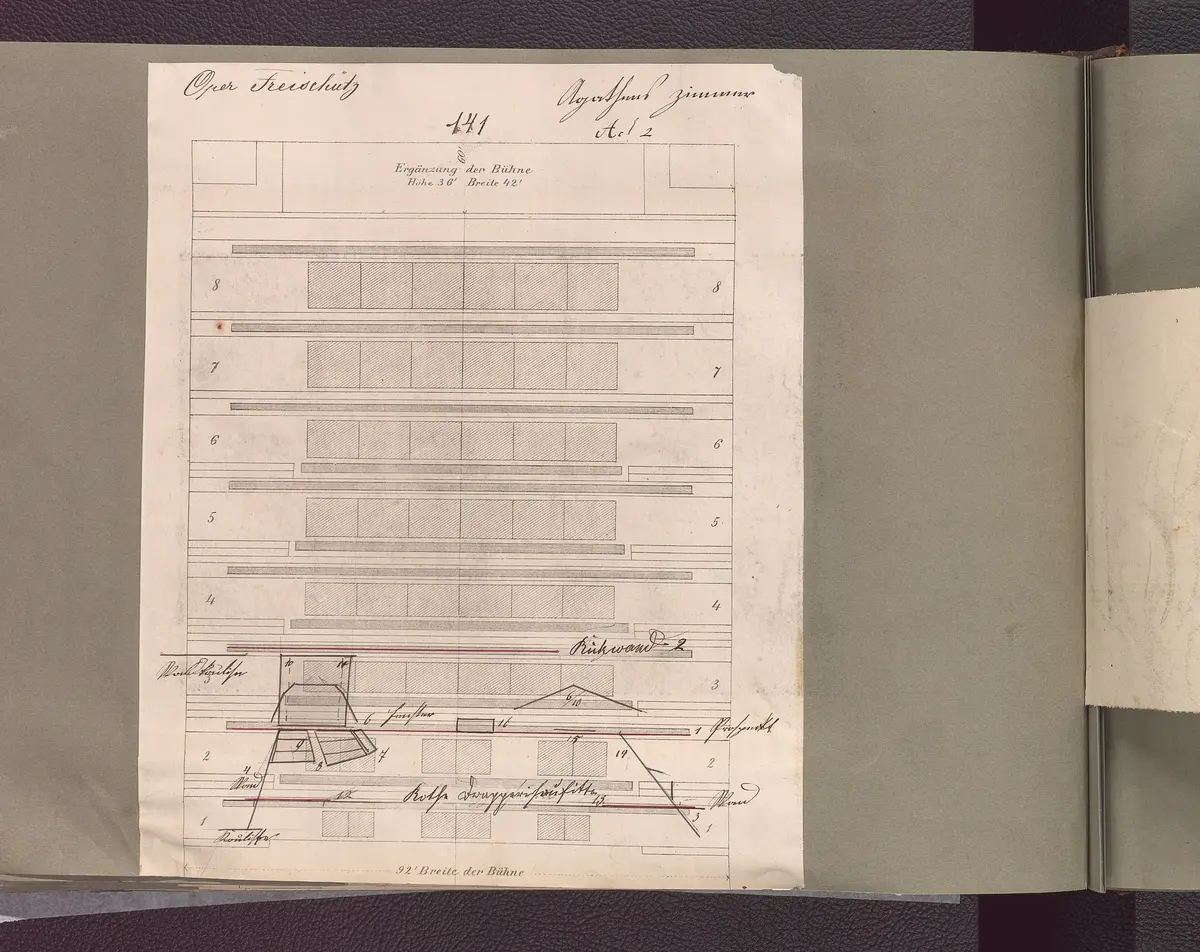 Oper Freischütz
Agathens Zimmer
141
Act 2
60'
Ergänzung der Bühne
Höhe 36' Breite 42'
8 8
7 7
6 6
5 5
4 4
Rückwand 2
10 11
3
6/10
6 Fenster
16
1 Prospekt
15
14
2 2
9
8
7
4
Wand
12
Rothe Drapperiesuffitte
13
Wand
3
1 1
Koulisse
92' Breite der Bühne